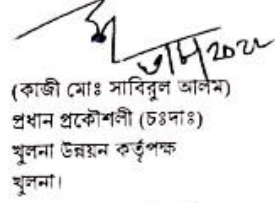 (কাজী মোঃ সাবিরুল আলম)
প্রধান প্রকৌশলী (চঃদাঃ)
খুলনা উন্নয়ন কর্তৃপক্ষ
খুলনা।